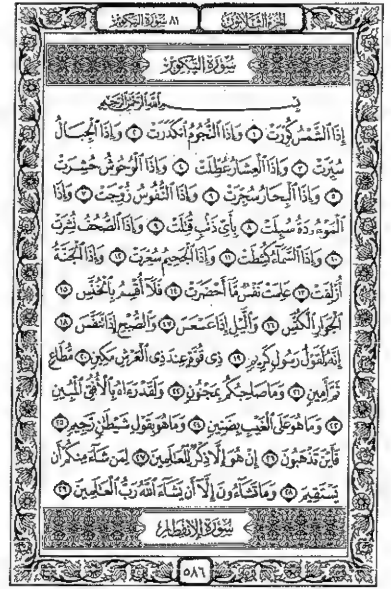 الجزء الثلاثون ٨١ سورة التكوير
سورة التكوير
بسم الله الرحمن الرحيم
إِذَا الشَّمْسُ كُوِّرَتْ ١ وَإِذَا النُّجُومُ انكَدَرَتْ ٢ وَإِذَا الْجِبَالُ
سُيِّرَتْ ٣ وَإِذَا الْعِشَارُ عُطِّلَتْ ٤ وَإِذَا الْوُحُوشُ حُشِرَتْ
٥ وَإِذَا الْبِحَارُ سُجِّرَتْ ٦ وَإِذَا النُّفُوسُ زُوِّجَتْ ٧ وَإِذَا
الْمَوْءُۥدَةُ سُئِلَتْ ٨ بِأَيِّ ذَنْبٍ قُتِلَتْ ٩ وَإِذَا الصُّحُفُ نُشِرَتْ
١٠ وَإِذَا السَّمَاءُ كُشِطَتْ ١١ وَإِذَا الْجَحِيمُ سُعِّرَتْ ١٢ وَإِذَا الْجَنَّةُ
أُزْلِفَتْ ١٣ عَلِمَتْ نَفْسٌ مَّا أَحْضَرَتْ ١٤ فَلَا أُقْسِمُ بِالْخُنَّسِ ١٥
الْجَوَارِ الْكُنَّسِ ١٦ وَاللَّيْلِ إِذَا عَسْعَسَ ١٧ وَالصُّبْحِ إِذَا تَنَفَّسَ ١٨
إِنَّهُ لَقَوْلُ رَسُولٍ كَرِيمٍ ١٩ ذِي قُوَّةٍ عِندَ ذِي الْعَرْشِ مَكِينٍ ٢٠ مُّطَاعٍ
ثَمَّ أَمِينٍ ٢١ وَمَا صَاحِبُكُم بِمَجْنُونٍ ٢٢ وَلَقَدْ رَءَاهُ بِالْأُفُقِ الْمُبِينِ
٢٣ وَمَا هُوَ عَلَى الْغَيْبِ بِضَنِينٍ ٢٤ وَمَا هُوَ بِقَوْلِ شَيْطَانٍ رَّجِيمٍ ٢٥
فَأَيْنَ تَذْهَبُونَ ٢٦ إِنْ هُوَ إِلَّا ذِكْرٌ لِّلْعَالَمِينَ ٢٧ لِمَن شَاءَ مِنكُمْ أَن
يَسْتَقِيمَ ٢٨ وَمَا تَشَاءُونَ إِلَّا أَن يَشَاءَ اللَّهُ رَبُّ الْعَالَمِينَ ٢٩
سورة الانفطار
٥٨٦